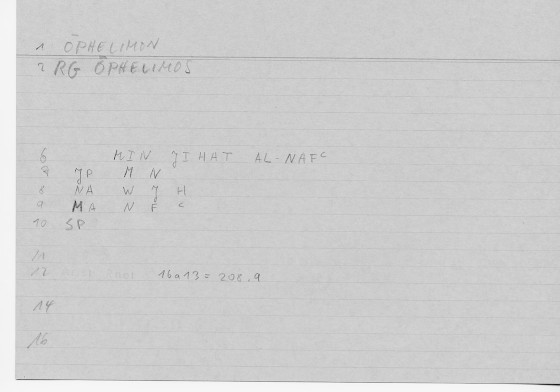 1 ŌPHELIMON
2 RG ŌPHELIMOS
6 MIN JIHAT AL-NAFᶜ
8 JP M N
8 NA W J H
9 MA N F ᶜ
10 SP
11
12 16a13 = 208.9
14
16